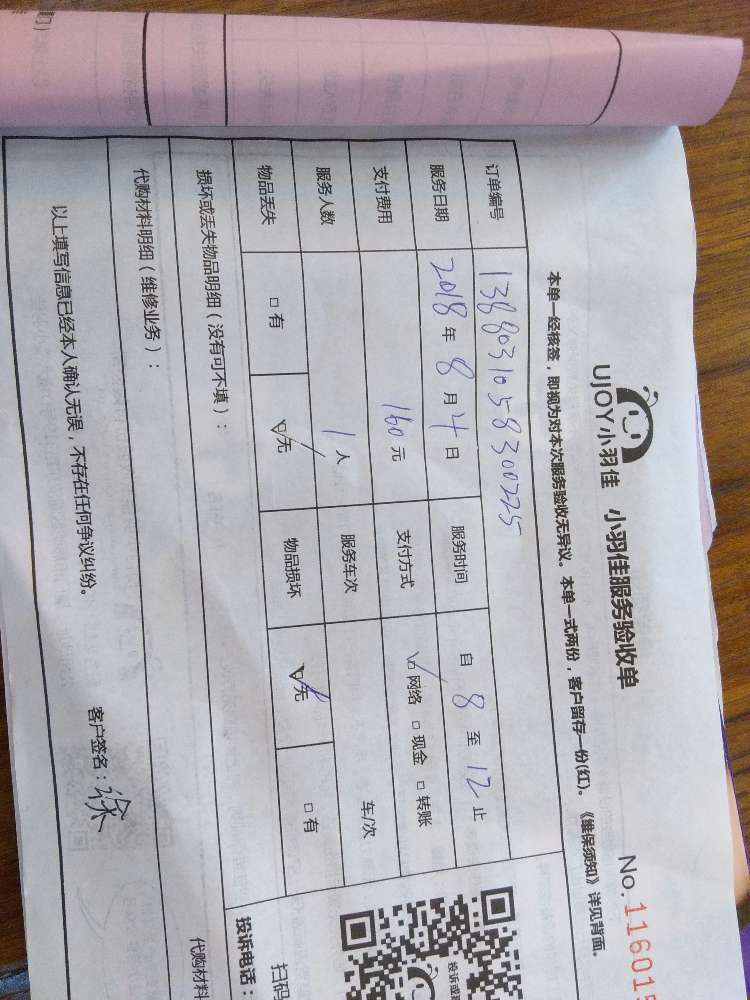 UJOY小羽佳 小羽佳服务验收单 No.116015
本单一经核签，即视为对本次服务验收无异议。本单一式两份，客户留存一份(红)。《维保须知》详见背面。
订单编号 1388031058300225
服务日期 2018年8月4日 服务时间 自8至12止
支付费用 160元 支付方式 ☑网络 □现金 □转账
服务人数 1人 服务车次 车/次
物品丢失 □有 ☑无 物品损坏 ☑无 □有
损坏或丢失物品明细（没有可不填）：
代购材料明细（维修业务）： 代购材料
以上填写信息已经本人确认无误，不存在任何争议纠纷。 客户签名：徐
投诉或
扫码
投诉电话：